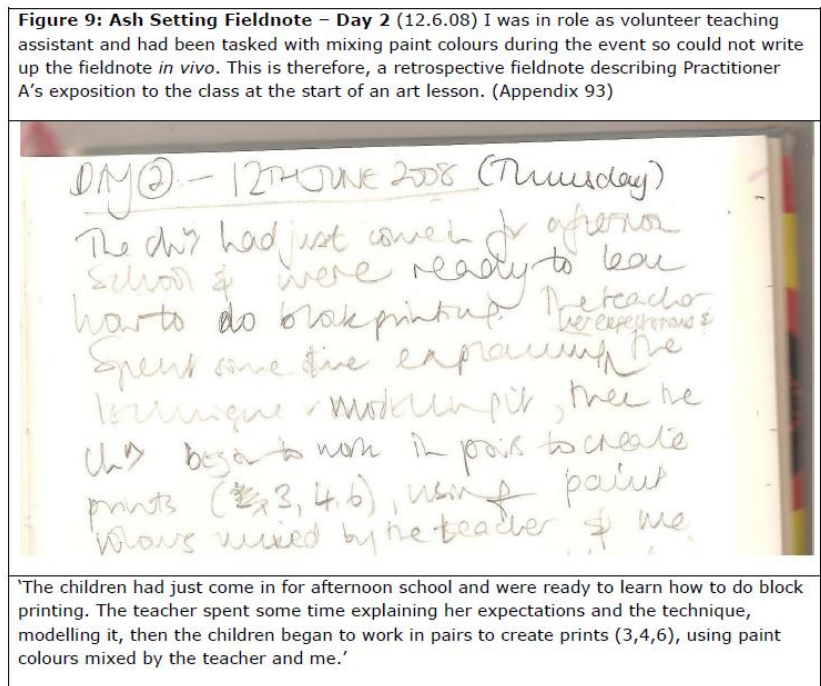 Figure 9: Ash Setting Fieldnote – Day 2 (12.6.08) I was in role as volunteer teaching
assistant and had been tasked with mixing paint colours during the event so could not write
up the fieldnote in vivo. This is therefore, a retrospective fieldnote describing Practitioner
A’s exposition to the class at the start of an art lesson. (Appendix 93)
DAY 2 – 12TH JUNE 2008 (Thursday)
The chn had just come in for afternoon
School & were ready to learn
how to do block printing. The teacher
her expectations &
Spent some time explaining the
technique & modelling it, then the
chn began to work in pairs to create
prints (3, 4, 6), using paint
colours mixed by the teacher & me
‘The children had just come in for afternoon school and were ready to learn how to do block
printing. The teacher spent some time explaining her expectations and the technique,
modelling it, then the children began to work in pairs to create prints (3,4,6), using paint
colours mixed by the teacher and me.’